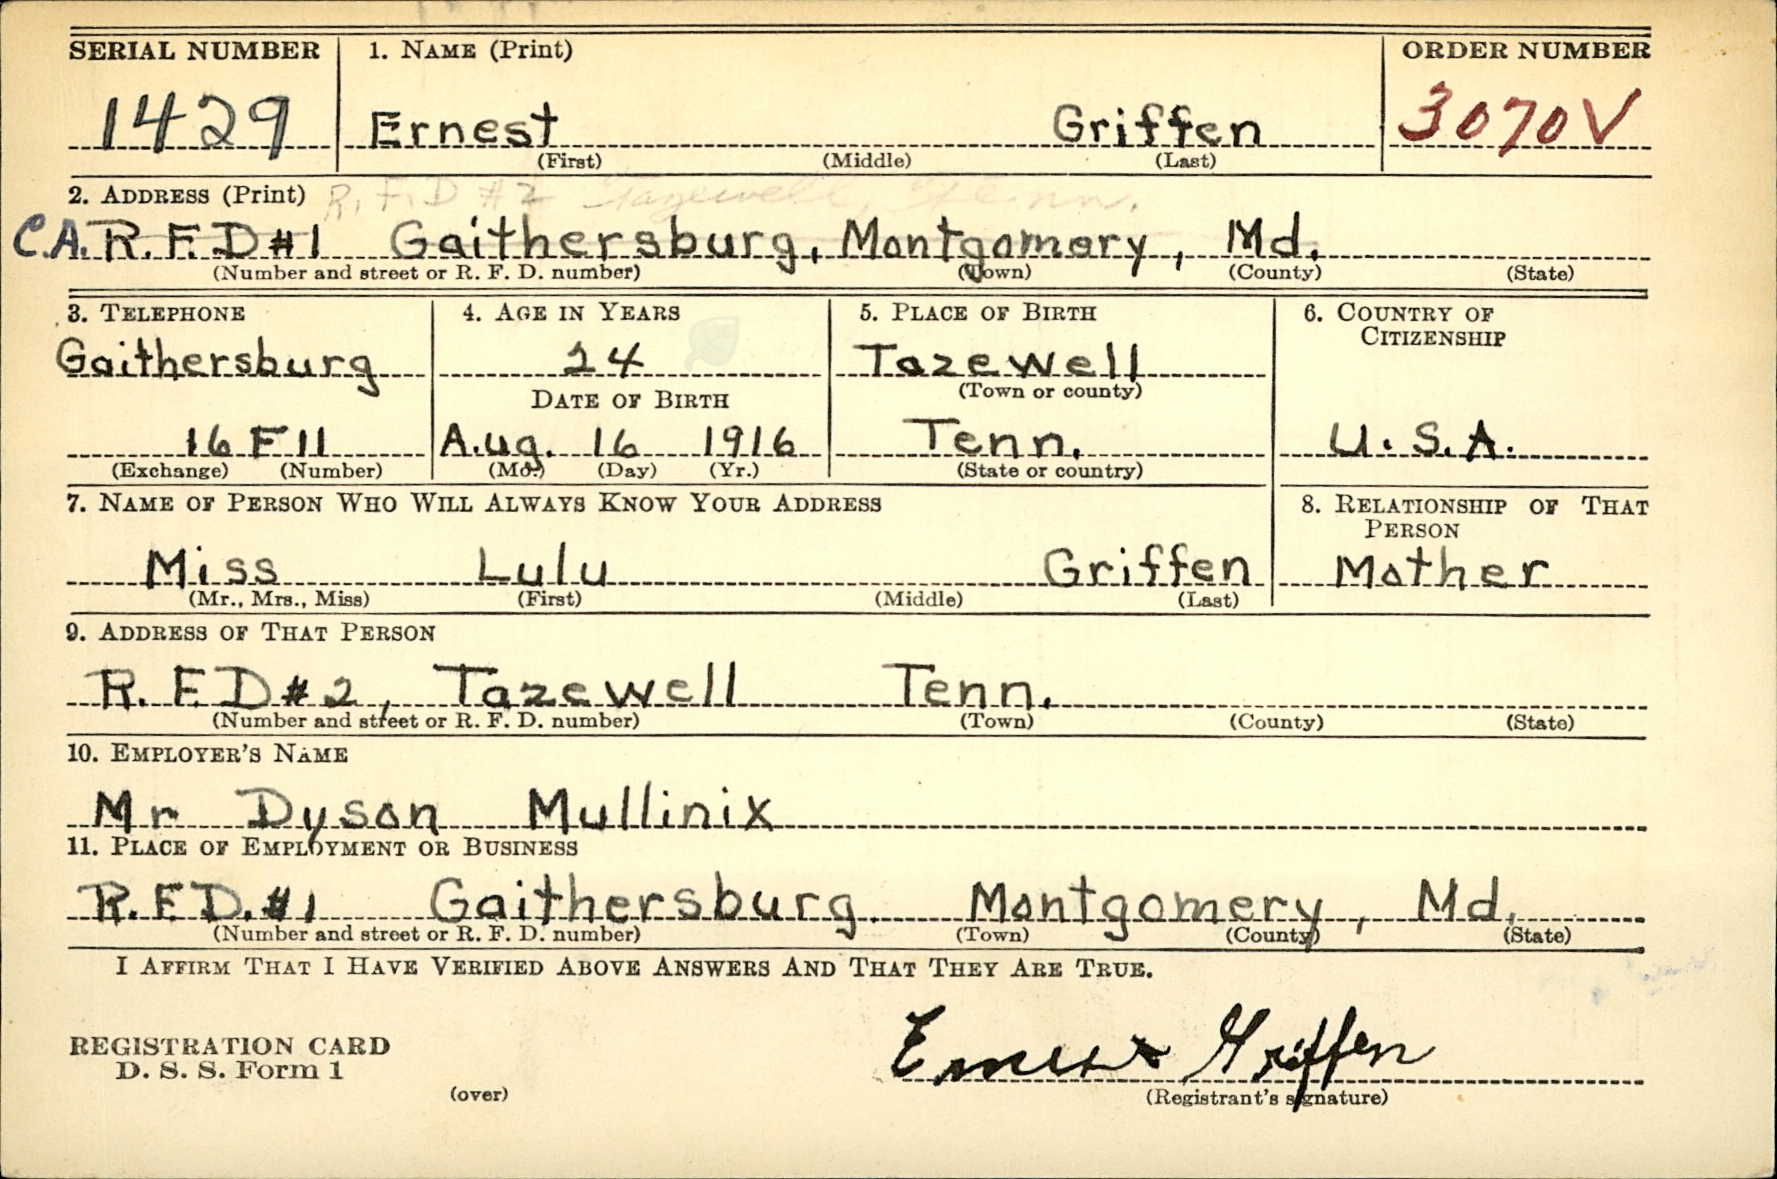 SERIAL NUMBER 1. NAME (Print) ORDER NUMBER
1429 Ernest Griffen 3070V
(First) (Middle) (Last)
2. ADDRESS (Print) R.F.D #2 Tazewell, Tenn.
C.A. R.F.D #1 Gaithersburg, Montgomery, Md.
(Number and street or R. F. D. number) (Town) (County) (State)
3. TELEPHONE 4. AGE IN YEARS 5. PLACE OF BIRTH 6. COUNTRY OF
CITIZENSHIP
Gaithersburg 24 Tazewell
(Town or county)
DATE OF BIRTH
16 F 11 Aug. 16 1916 Tenn. U.S.A.
(Exchange) (Number) (Mo.) (Day) (Yr.) (State or country)
7. NAME OF PERSON WHO WILL ALWAYS KNOW YOUR ADDRESS 8. RELATIONSHIP OF THAT
PERSON
Miss Lulu Griffen Mother
(Mr., Mrs., Miss) (First) (Middle) (Last)
9. ADDRESS OF THAT PERSON
R.F.D #2, Tazewell Tenn.
(Number and street or R. F. D. number) (Town) (County) (State)
10. EMPLOYER'S NAME
Mr Dyson Mullinix
11. PLACE OF EMPLOYMENT OR BUSINESS
R.F.D. #1 Gaithersburg Montgomery, Md.
(Number and street or R. F. D. number) (Town) (County) (State)
I AFFIRM THAT I HAVE VERIFIED ABOVE ANSWERS AND THAT THEY ARE TRUE.
Ernest Griffen
REGISTRATION CARD
D. S. S. Form 1
(over) (Registrant's signature)